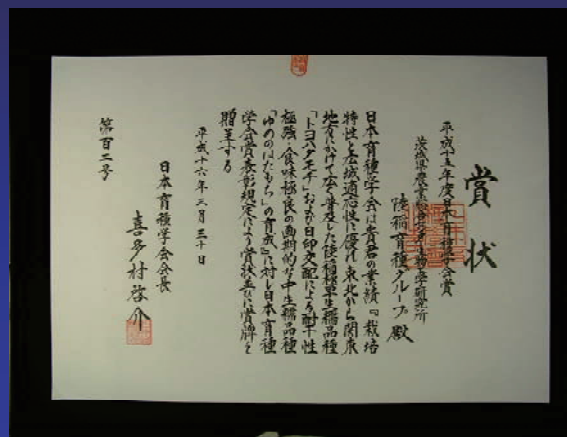 賞状
平成十五年度日本育種学会賞
茨城県農業総合センター生物工学研究所
陸稲育種グループ殿
日本育種学会は貴君の業績『栽培
特性と広域適応性に優れ、東北から関東
地方にかけて広く普及した陸稲極早生糯品種
「トヨハタモチ」および日印交配による耐干性
極強・食味極良の画期的な中生糯品種
「ゆめのはたもち」の育成』に対し日本育種
学会賞表彰規定により賞状並びに賞牌を
贈呈する
平成十六年三月三十日
日本育種学会会長
喜多村啓介
第百二号